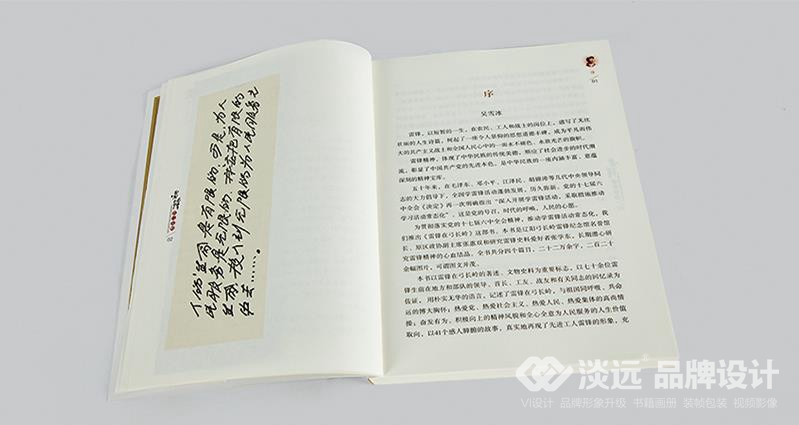 人的生命是有限的，可是，为人
民服务是无限的，我要把有限的
生命，投入到无限的为人民服务之
中去……
序
吴雪冰
雷锋，以短暂的一生，在农民、工人和战士的岗位上，谱写了无比
壮丽的人生诗篇，树起了一座令人景仰的思想道德丰碑，成为平凡而伟
大的共产主义战士和全国人民心中的一面永不褪色、永放光芒的旗帜。
雷锋精神，体现了中华民族的传统美德，顺应了社会进步的时代潮
流，彰显了中国共产党的先进本色，是中华民族的一座内涵丰富、意蕴
深刻的精神宝库。
五十年来，在毛泽东、邓小平、江泽民、胡锦涛等几代中央领导同
志的大力倡导下，全国学雷锋活动蓬勃发展，历久弥新。党的十七届六
中全会《决定》再一次明确指出“深入开展学雷锋活动，采取措施推动
学习活动常态化”。这是党的号召，时代的呼唤，人民的心愿。
为贯彻落实党的十七届六中全会精神，推动学雷锋活动常态化，我
们推出《雷锋在弓长岭》这部书。本书是辽阳弓长岭雷锋纪念馆名誉馆
长、原区政协副主席张惠双和研究雷锋史料爱好者张学东，长期潜心研
究雷锋精神的心血结晶。全书共分四个篇目，二十二万余字，二百二十
余幅图片，可谓图文并茂。
本书以雷锋在弓长岭的著述、文物史料为重要标志，以七十余位雷
锋生前在地方和部队的领导、首长、工友、战友和有关同志的回忆录为
佐证，用朴实无华的语言，记述了雷锋在弓长岭，与祖国同呼吸、共命
运的博大胸怀；热爱党、热爱社会主义、热爱人民、热爱集体的高尚情
操；奋发有为、积极向上的精神风貌和全心全意为人民服务的人生价值
取向，以41个感人肺腑的故事，真实地再现了先进工人雷锋的形象，充
淡远 品牌设计
VI设计 品牌形象升级 书籍画册 装帧包装 视频影像